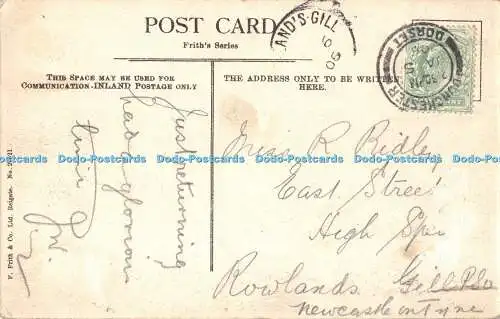 POST CARD
Frith's Series
THIS SPACE MAY BE USED FOR
COMMUNICATION-INLAND POSTAGE ONLY
THE ADDRESS ONLY TO BE WRITTEN
HERE.
AND'S-GILL
05
DORCHESTER
DORSET
Just returning
had a glorious
time
F. Frith & Co. Ltd. Reigate.
Miss R Ridley
East Street
High Spen
Rowlands Gill P.S.O
Newcastle on Tyne
Dodo-Postcards Dodo-Postcards Dodo-Postcards Dodo-Postcards Dodo-Postcards